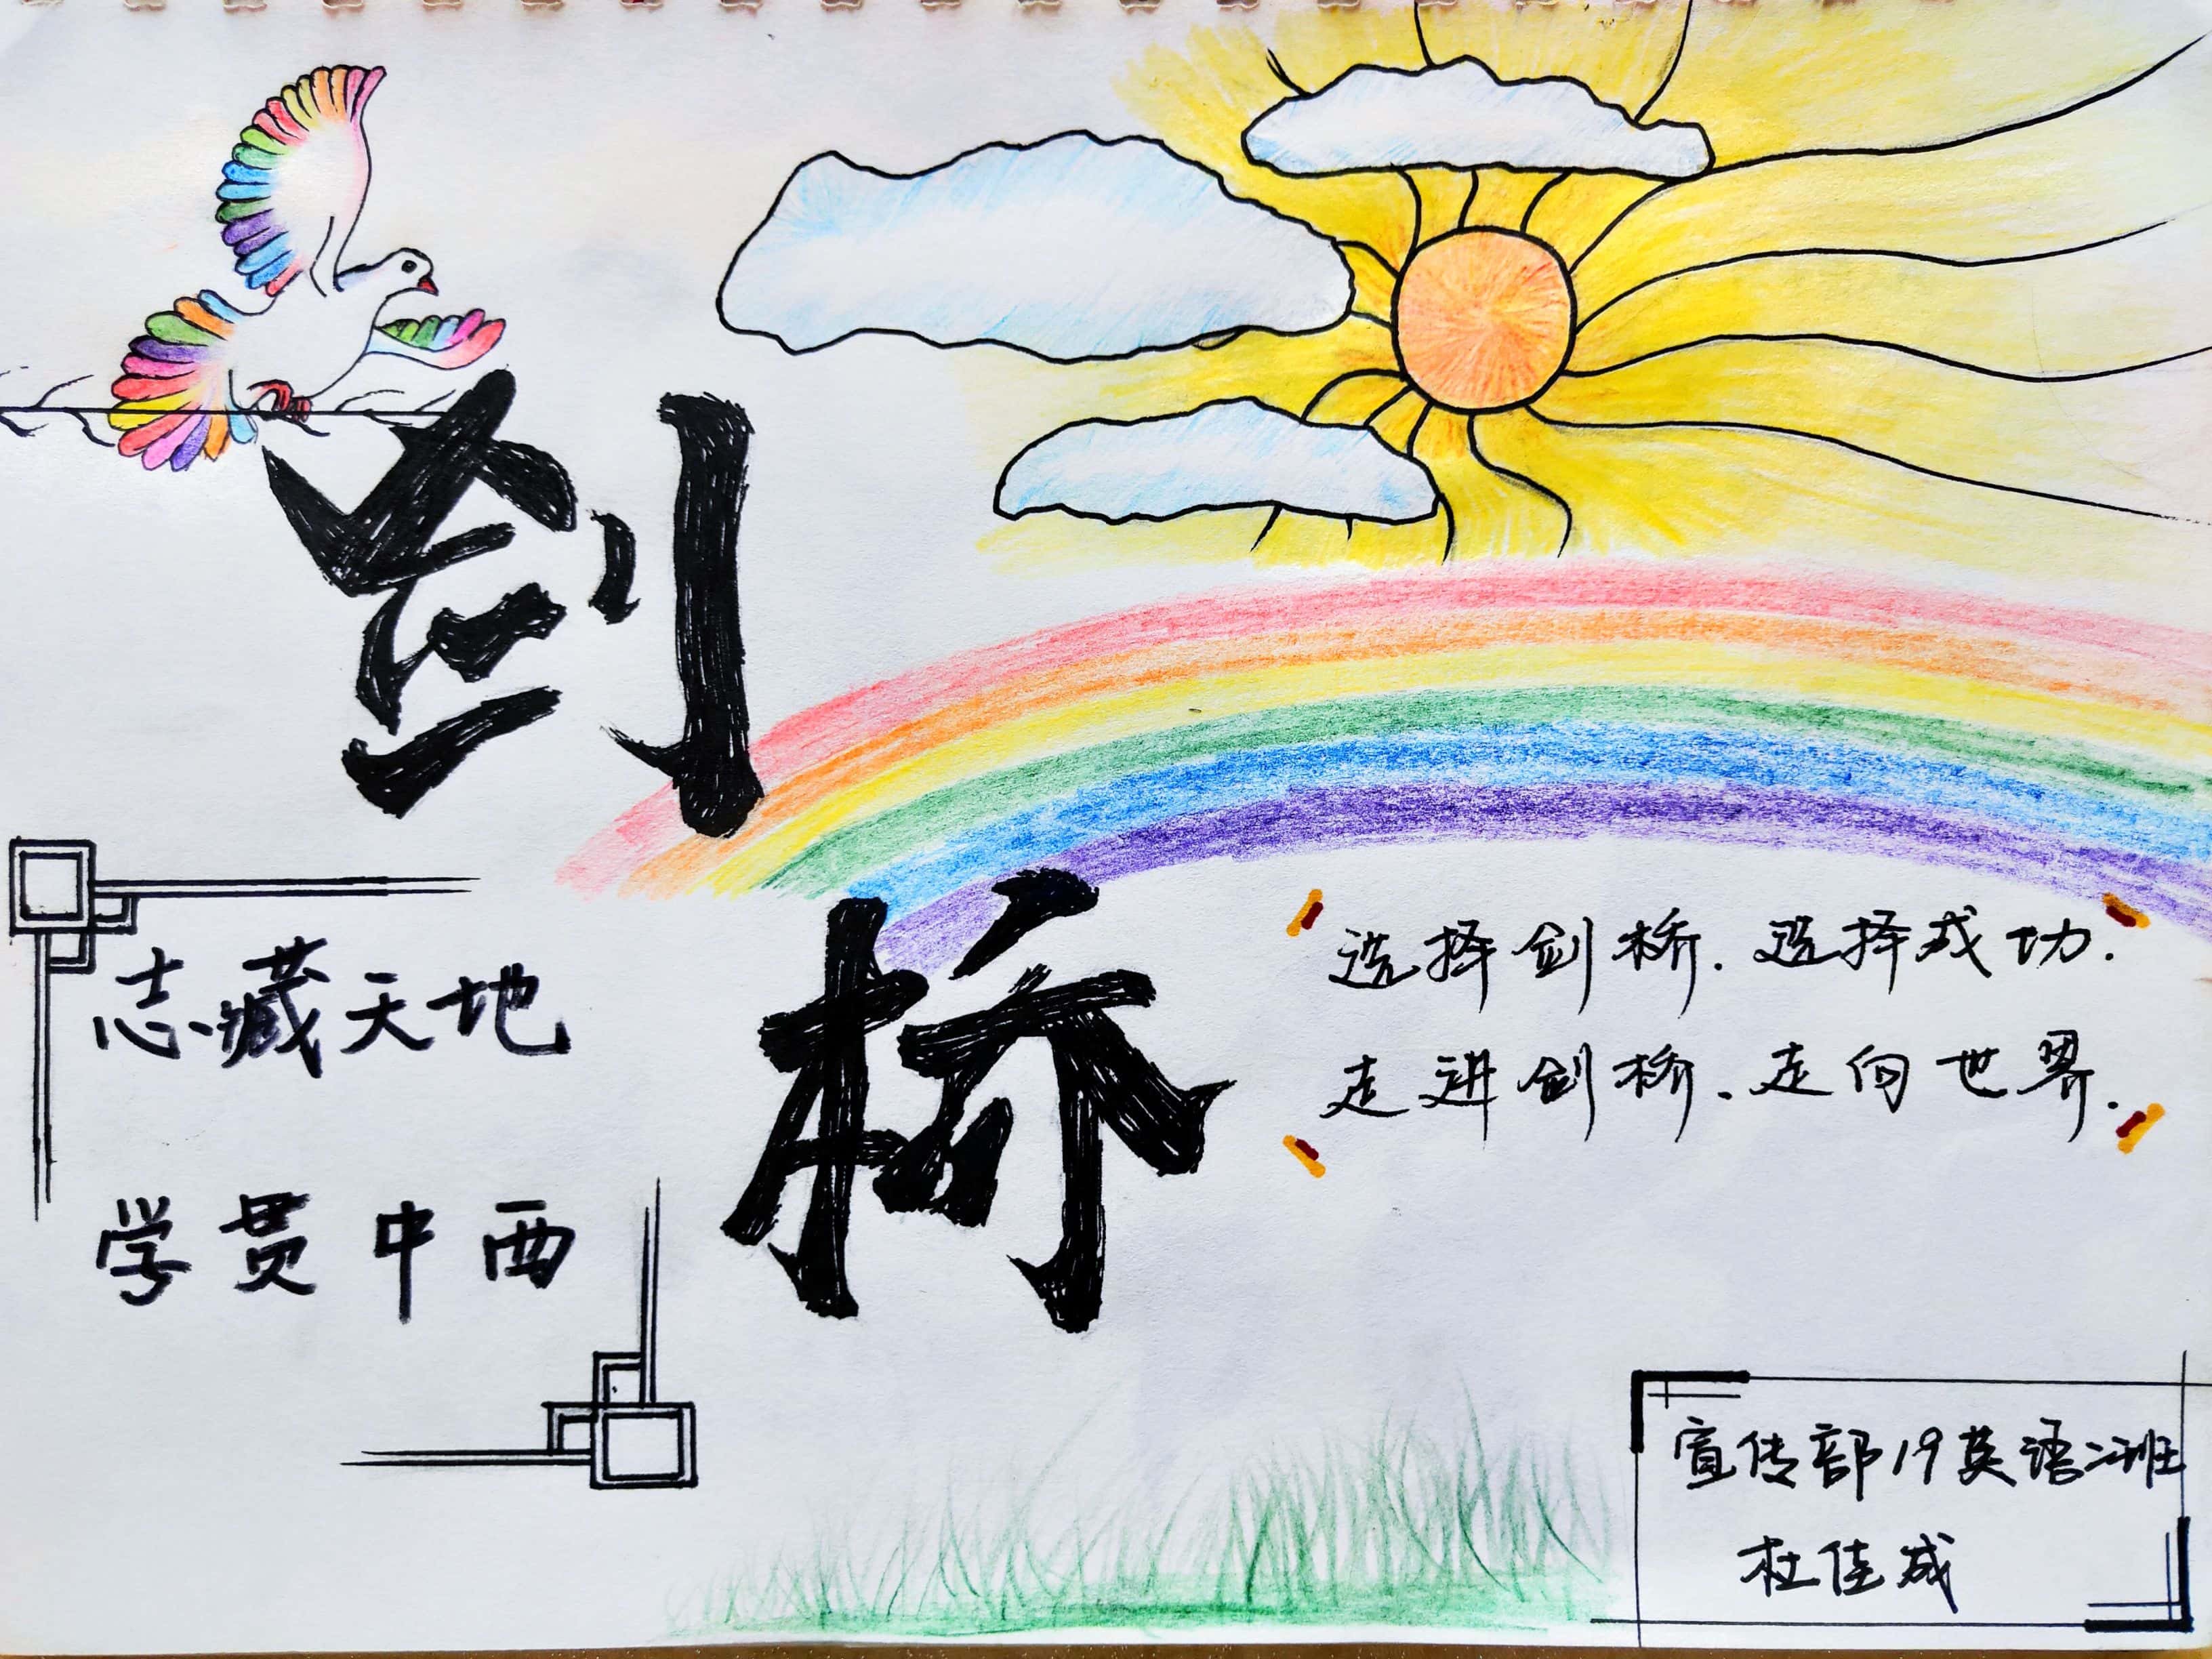 剑
桥
志藏天地
学贯中西
选择剑桥.选择成功.
走进剑桥.走向世界.
宣传部19英语二班
杜佳成